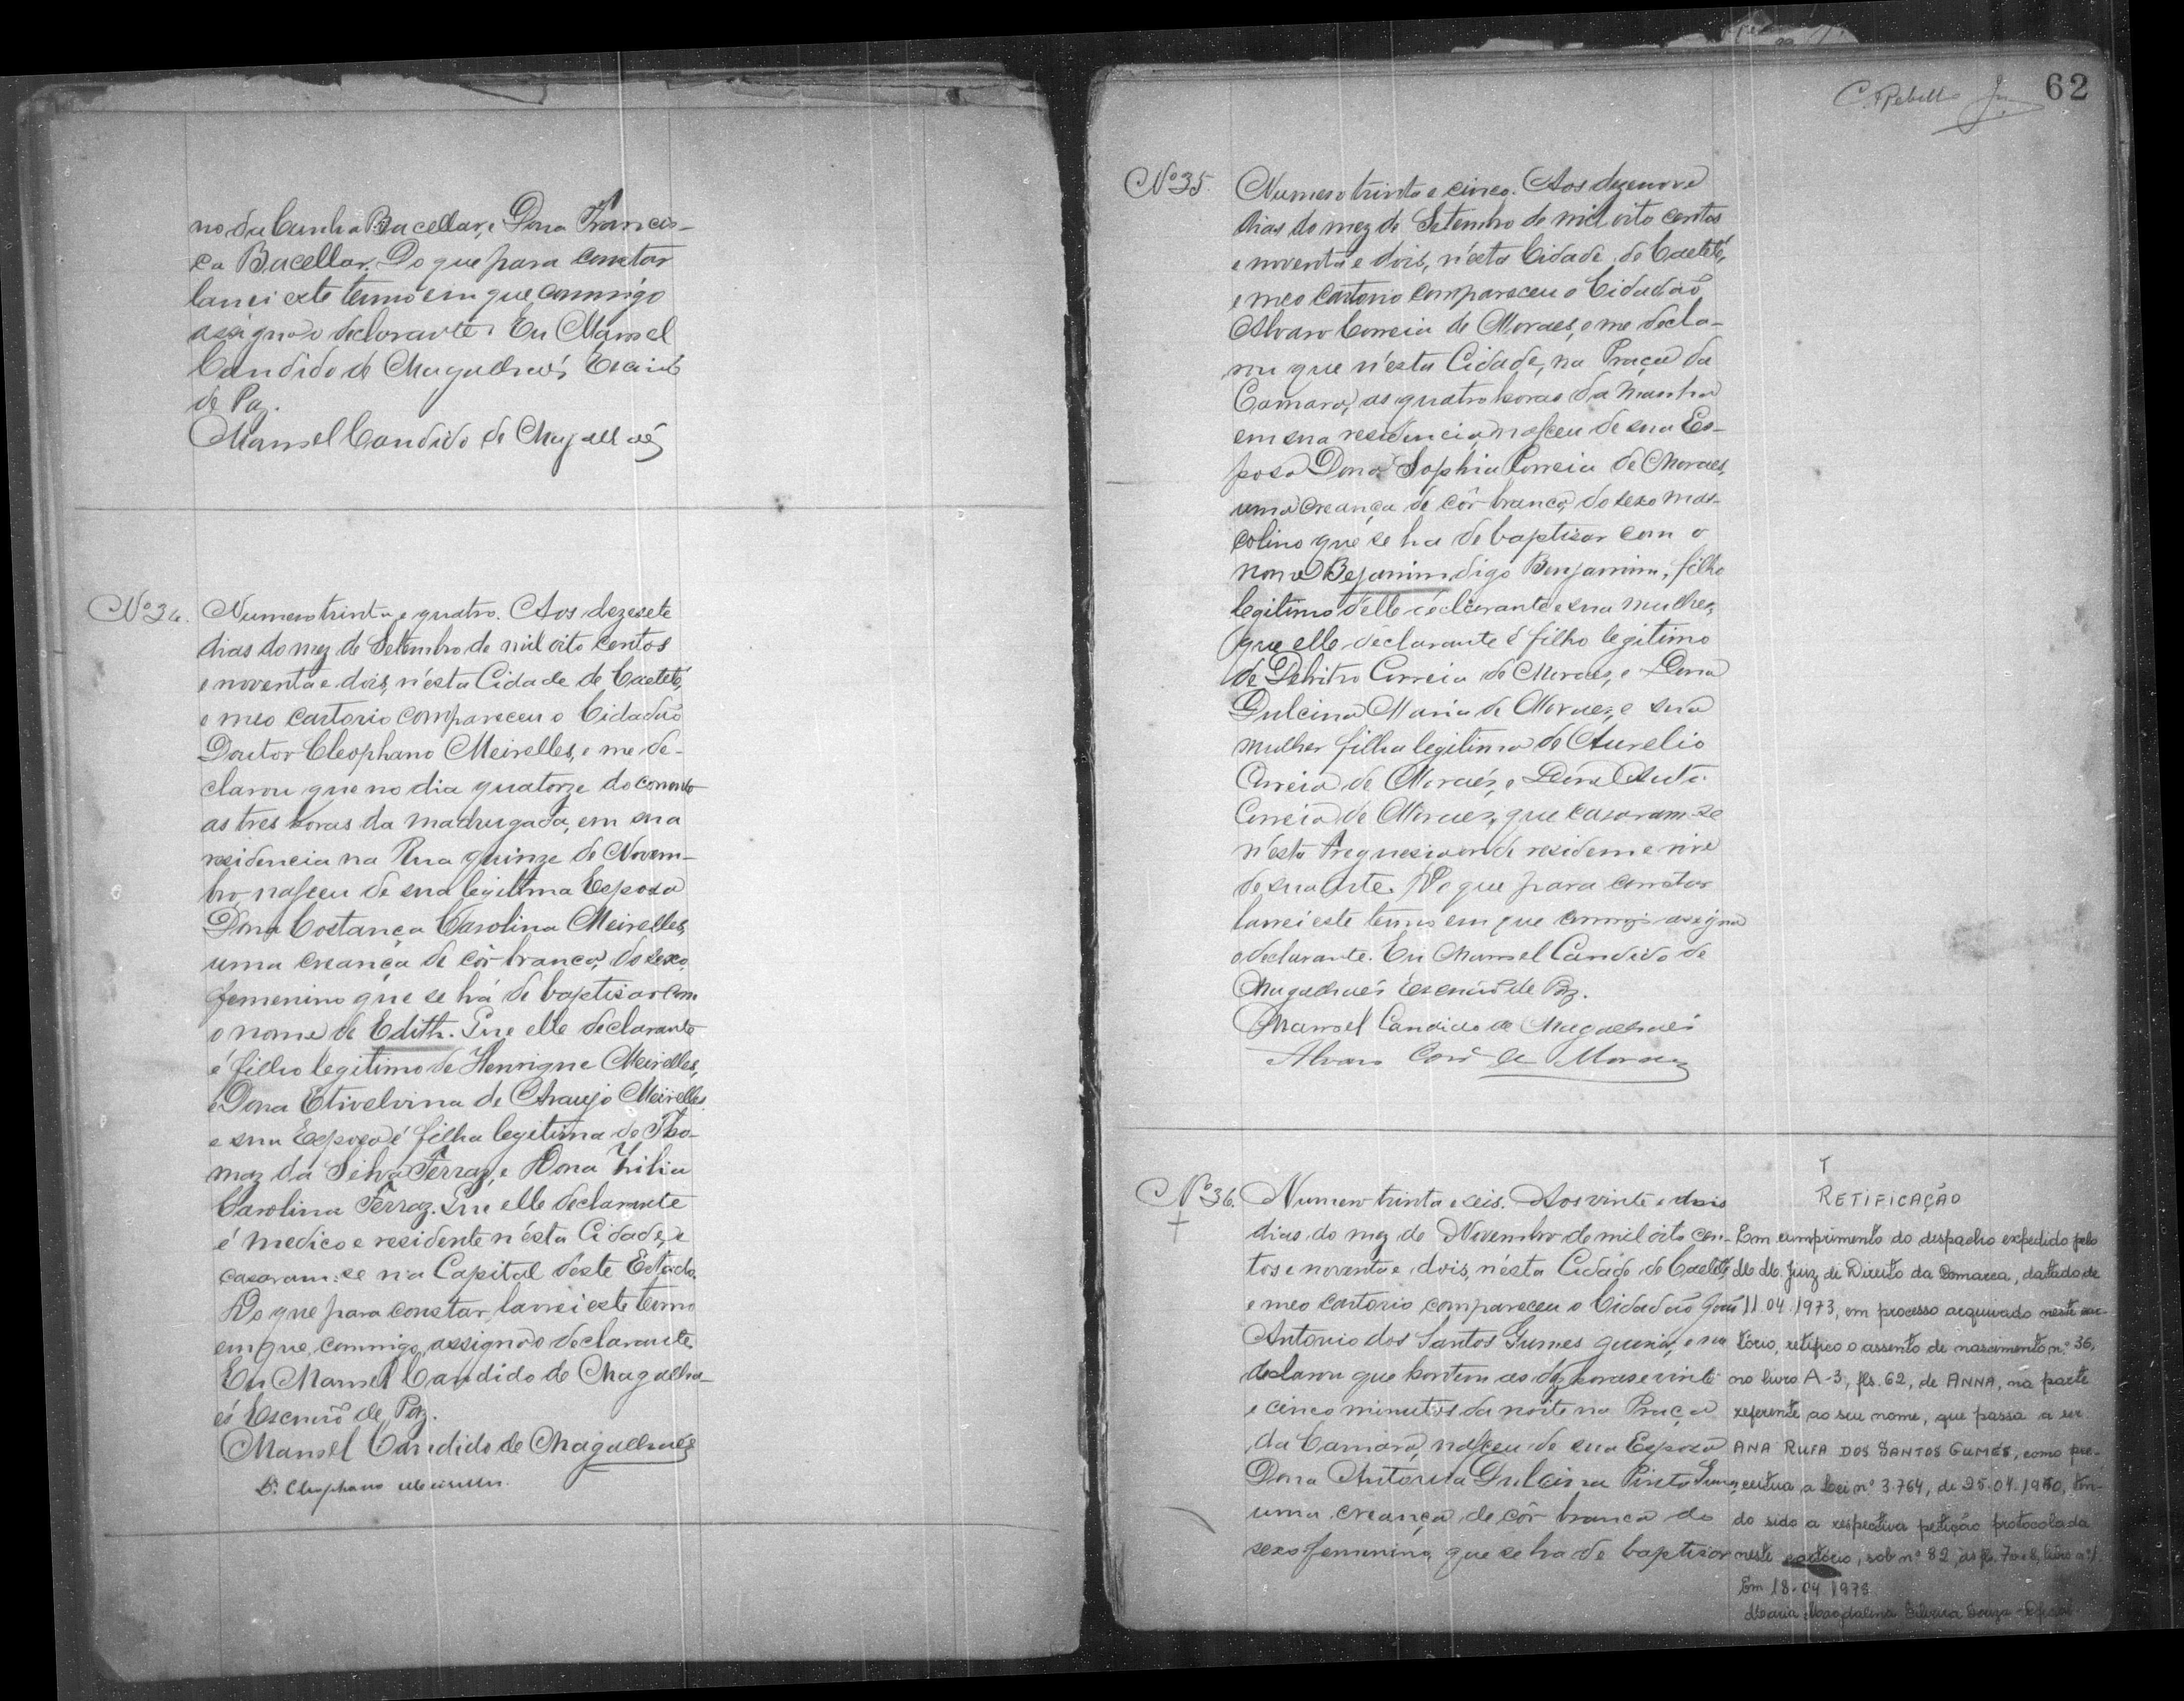 no da Cunha Bacellar, e Dona Francis-
ca Bacellar. Do que para constar
lavrei este termo em que commigo
assigna o declarante. Eu Manoel
Candido de Magalhaes Escrivão
de Paz.
Manoel Candido de Magalhaes
Nº 34.
Numero trinta e quatro. Aos dezesete
dias do mez de Setembro de mil oito centos
e noventa e dois, n'esta Cidade de Caeteté,
e meo cartorio compareceu o Cidadão
Doutor Cleophano Meirelles, e me de-
clarou que no dia quatorze do corrente
as tres horas da madrugada, em sua
residencia na Rua quinze de Novem-
bro, nasceu de sua legitima Esposa
Dona Costança Carolina Meirelles,
uma creança de côr branca, do sexo
femenino que se há de baptisar com
o nome de Edith. Que elle declarante
é filho legitimo de Henrique Meirelles,
e Dona Etivelvina de Araujo Meirelles
e sua Esposa é filha legitima de Tho-
maz da Silva Ferraz, e Dona
Carolina Ferraz. Que elle declarante
é medico e residente n'esta Cidade, e
casaram-se na Capital deste Estado.
Do que para constar, lavrei este termo
em que, commigo, assigna o declarante.
Eu Manoel Candido de Magalha-
es Escrivão de Paz.
Manoel Candido de Magalhaes
Dr. Cleophano Meirelles.
C. Rebello Jr.
62
Nº 35.
Numero trinta e cinco. Aos dezenove
dias do mez de Setembro de mil oito centos
e noventa e dois, n'esta Cidade de Caeteté,
e meo cartorio compareceu o Cidadão
Alvaro Correia de Moraes, e me decla-
rou que n'esta Cidade, na Praça da
Camara, as quatro horas da manhã
em sua residencia, nasceu de sua Es-
posa Dona Sophia Correia de Moraes,
uma creança de côr branca, do sexo mas-
colino que se ha de baptisar com o
nome Bejamim digo Benjamim, filho
legitimo delle declarante e sua mulher,
que elle declarante é filho legitimo
de Correia de Moraes, e Dona
Dulcina Maria de Moraes, e sua
mulher filha legitima de Aurelio
Correia de Moraes, e Dona
Correia de Moraes, que casaram-se
n'esta Freguesia onde residem e vive
de sua arte. Do que para constar
lavrei este termo em que commigo assigna
o declarante. Eu Manoel Candido de
Magalhaes Escrivão de Paz.
Manoel Candido de Magalhaes
Alvaro Corª de Moraes
Nº 36.
Numero trinta e seis. Aos vinte e dois
dias do mez de Novembro de mil oito cen-
tos e noventa e dois, n'esta Cidade de Caeteté,
e meo cartorio compareceu o Cidadão João
Antonio dos Santos Gumes e me
declarou que hontem as dez horas e vinte
e cinco minutos da noite na Praça
da Camara, nasceu de sua Esposa
Dona Antonia Dulcina Pinto Gumes
uma creança, de côr branca do
sexo femenino, que se ha de baptisar
RETIFICAÇÃO
Em cumprimento do despacho expedido pelo
M. M. Juiz de Direito da Comarca, datado de
11.04.1973, em processo arquivado neste car-
tório, retifico o assento de nascimento n.º 36,
no livro A-3, fls. 62, de ANNA, na parte
referente ao seu nome, que passa a ser
ANA RUFA DOS SANTOS GUMES, como pre-
ceitua a Lei nº 3.764, de 25.04.1960, ten-
do sido a respectiva petição protocolada
neste cartório, sob nº 82, às fls. 7 e 8, livro nº 1.
Em 18.04.1973
Maria Magdalena Silveira Souza - Oficial